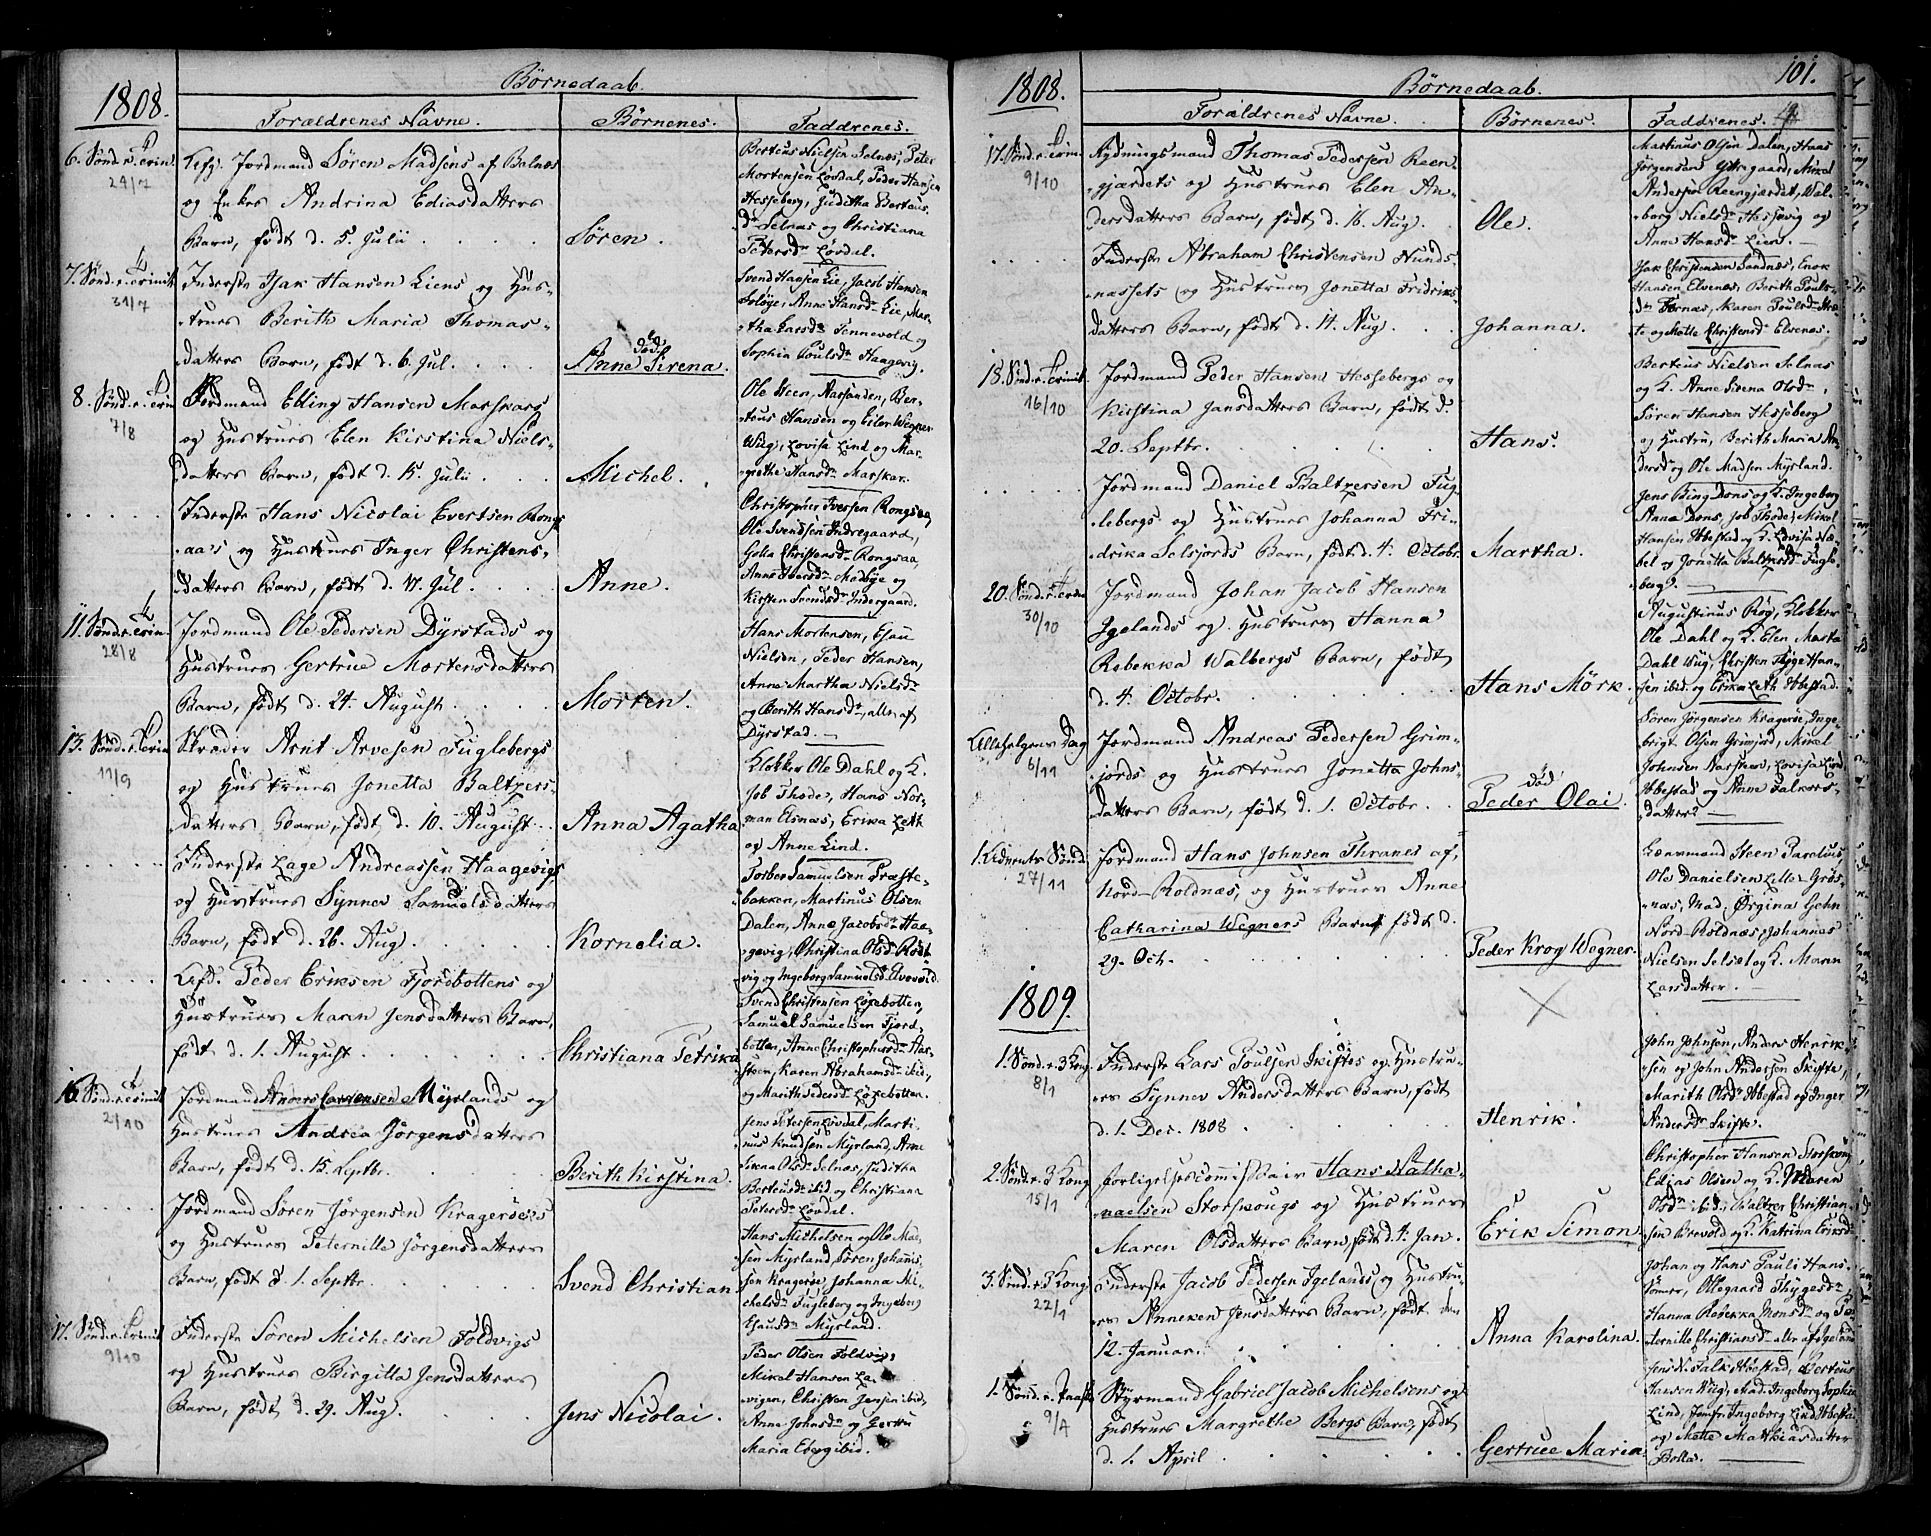 1808.
Børnedaab.
Forældrenes Navne.
Børnenes.
Faddrenes.
6. Sønd. e. Trin.
24/7
Jordmand Søren Madsens af Selnæs
og Enkes Andrina Ediasdatters
Barn, født d. 5. Julii
Søren.
Berteus Nielsen Selnæs, Peter
Mortensen Løvdal, Peder Hansen
Hesseberg, Juditha Berteus-
dr. Selnæs og Christiana
Petersdr. Løvdal.
7. Sønd. e. Trinit.
31/7
Inderste Isak Hansen Liens og Hus-
-trues Berith Maria Thomas-
datters Barn, født d. 6. Jul.
død
Anne Sirena.
Svend Hansen Lie, Jacob Hansen
Anne Hansdr. Lie, Mar-
-tha Larsdr. Tennevold og
Sophia Poulsdr. Haagevig.
8. Sønd. e. Trin.
7/8
Jordmand Elling Hansen Marskars
og Hustrues Elen Kirstina Niels-
datters Barn, født d. 15. Julii
Michel.
Ole Steen, Aarsanden, Ber-
teus Hansen og Eiler Wegner
Wug, Lovisa Lind og Mar-
-grethe Hansdr. Marskar.
Inderste Hans Nicolai Evertsen Rongs-
-aa's og Hustrues Inger Christens-
datters Barn, født d. 17. Jul.
Anne.
Christopher Iversen Rongsaa,
Ole Svendsen Indregaard,
Golla Christensdr. Rongsaa,
Anne Iversdr. Madbye og
Kirsten Svendsdr. Indergaard.
11. Sønd. e. Trin.
28/8
Jordmand Ole Pedersen Dyrstads og
Hustrues Gertrue Mortensdatters
Barn, født d. 24. August
Morten.
Hans Mortensen, Esau
Nielsen, Peder Hansen,
Anne Martha Nielsdr.
og Berith Hansdr., alle af
Dyrstad.
13. Sønd. e. Trin.
11/9
Skræder Arnt Arvesen Fuglebergs
og Hustrues Jonetta Baltzers-
datters Barn, født d. 10. August
Anna Agatha
Klokker Ole Dahl og K.
Job Thode, Hans Nor-
man Elsnæs, Erika Leth
og Anne Lind.
Inderste Lage Andreassen Haagevigs
og Hustrues Synnev Samuelsdatters
Barn, født d. 26. Aug.
Kornelia.
Torber Samuelsen Præste-
bakken, Martinus Olsen
Dalen, Anne Jacobsdr. Haa-
gevig, Christina Olsdr. Rødt-
vig og Ingeborg Samuelsdr.
Peder Eriksen Fjordbottens og
Hustrues Maren Jensdatters Barn,
født d. 1. August
Christiana Petrika
Svend Christensen Løxebotten,
Samuel Samuelsen Fjord-
botten, Anne Christophersdr. Aar-
steen, Karen Abrahamsdr. ibid.,
og Marith Pedersdr. Løxebotten.
16. Sønd. e. Trinit.
2/10
Jordmand Anders Carstensen Myrlands og
Hustrues Andrea Jørgensdatters
Barn, født d. 15. Septbr.
Berith Kirstina.
Jens Petersen Løvdal, Marti-
nus Knudsen Myrland, Anne
Sirena Olsdr. Selnæs, Juditha
Berteusdr. ibid og Christiana
Petersdr. Løvdal.
Jordmand Søren Jørgensen Kragerøes
og Hustrues Peternille Jørgensdatters
Barn, født d. 1. Septbr.
Svend Christian
Hans Michelsen og Ole Mad-
sen Myrland, Søren Johannis-
sen Kragerøe, Johanna Mi-
chelsdr. Fugleberg og Ingeborg
Esausdr. Myrland.
17. Sønd. e. Trinit.
9/10
Inderste Søren Michelsen Foldvigs
og Hustrues Birgitta Jensdatters
Barn, født d. 29. Aug.
Jens Nicolai.
Peder Olsen Foldvig,
Mikal Hansen La-
vigen, Christen Jensen ibid,
Anne Johnsdr. og Gertru
Maria ibid.
1808.
Børnedaab.
101.
Forældrenes Navne.
Børnenes.
Faddrenes.
17. Sønd. e. Trin.
9/10
Rydningsmand Thomas Pedersen Reen-
-gjærdets og Hustrues Elen An-
dersdatters Barn, født d. 16. Aug.
Ole.
Markus Olsen Dalen, Hans
Jørgensen Ydregaard, Mikel
Andersen Reengjærdet, Wal-
-borg Nielsdr. Hessevig og
Anne Hansdr. Lien.
Inderste Abraham Christensen Hunds-
-næssets og Hustrues Jonetta Fridriks-
datters Barn, født d. 11. Aug.
Johanna.
Isak Christensen Sandnæs, Enok
Hansen Elvenæs, Berith Pouls-
dr. Tornæs, Karen Poulsdr.
og Mette Christensdr. Elvenæs.
18. Sønd. e. Trinit.
16/10
Jordmand Peder Hansens Hessebergs og
Kirstina Jansdatters Barn, født d.
20. Septbr.
Hans.
Berteus Nielsen Selnæs
og K. Anne Sirena Olsdr.,
Søren Hansen Hesseberg
og Hustru, Berith Maria An-
dersdr og Ole Madsen Myrland.
Jordmand Daniel Baltzersen Fug-
-lebergs og Hustrues Johanna Fri-
-drika Selsjords Barn, født d. 4. Octobr.
Martha.
Jens Bing Dons og K. Ingeborg
Anna Dons, Job Thode, Mikel
Hansen Ibestad og K. Lovisa
og Jonetta Baltzersdr. Fugle-
berg.
20. Sønd. e. Trin.
30/10
Jordmand Johan Jacob Hansen
Igelands og Hustrues Hanna
Rebekka Walbergs Barn, født
d. 4. Octobr.
Hans Mörk.
Augustinus Røg, Klokker
Ole Dahl og K. Elen Marta
Dahl Wug, Christen Thyge Han-
sen ibid. og Erika Leth Ibestad.
Allehelgens Dag
6/11
Jordmand Andreas Pedersen Grim-
jords og Hustrues Jonetta Johns-
datters Barn, født d. 1. Octobr.
død
Peder Olai.
Søren Jørgensen Kragerøe, Inge-
brigt Olsen Grimjord, Mikel
Johnsen Marskar, Lovisa Lind
Ibestad og Anne Falkers-
datter.
1. Advents Sønd.
27/11
Jordmand Hans Johnsen Thranes af
Nord-Roldnæs, og Hustrues Anne
Catharina Wegners Barn født d.
29. Oct.
Peder Krog Wegner.
Lensmand Steen Parelius,
Ole Danielsen Lille-Grøs-
næs, Mad. Ørgina Gehn
Nord-Roldnæs, Johannes
Nielsen Selset og K. Marn
Larsdatter.
1809.
1. Sønd. e. 3 Kong.
8/1
Inderste Lars Poulsen Skiftes og Hustru-
-es Synnev Andersdatters Barn, født
d. 1. Dec. 1808
Henrik.
John Johnsen, Anders Henrik-
sen og John Andersen Skifte,
Marith Olsdr. Ibestad og Inger
Andersdr. Skifte.
2. Sønd. e. 3 Kong.
15/1
Forligelsescommissair Hans Natha-
-naelsen Storskougs og Hustrues
Maren Olsdatters Barn, født d. 4. Jan.
Erik Simon
Christopher Hansen Storskoug,
Edias Olsen og K. Maren
Olsdr. ibid., Baltzer Christian-
sen Brevold og K. Katrina Eriksdr.
3. Sønd. e. 3 Kong.
22/1
Inderste Jacob Pedersen Igelands og Hustru-
-es Anneken Jensdatters Barn, født den
12. Januar.
Anna Karolina.
Johan og Hans Pauli Hans-
sønner, Ollegaard Thygesdr.
Hanna Rebekka Monsdr. og Pe-
ternille Christiansdr. alle af Igeland
1. Sønd. e. Paaske
9/4
Styrmand Gabriel Jacob Michelsens og
Hustrues Margrethe Bergs Barn, født
d. 1. April
Gertrue Maria.
Jens N. Falk Ibestad, Berteus
Hansen Wug, Mad. Ingeborg Sophia
Lind, Jomfr. Ingeborg Lind Ibestad
og Mette Mathiasdatter
Bolla.